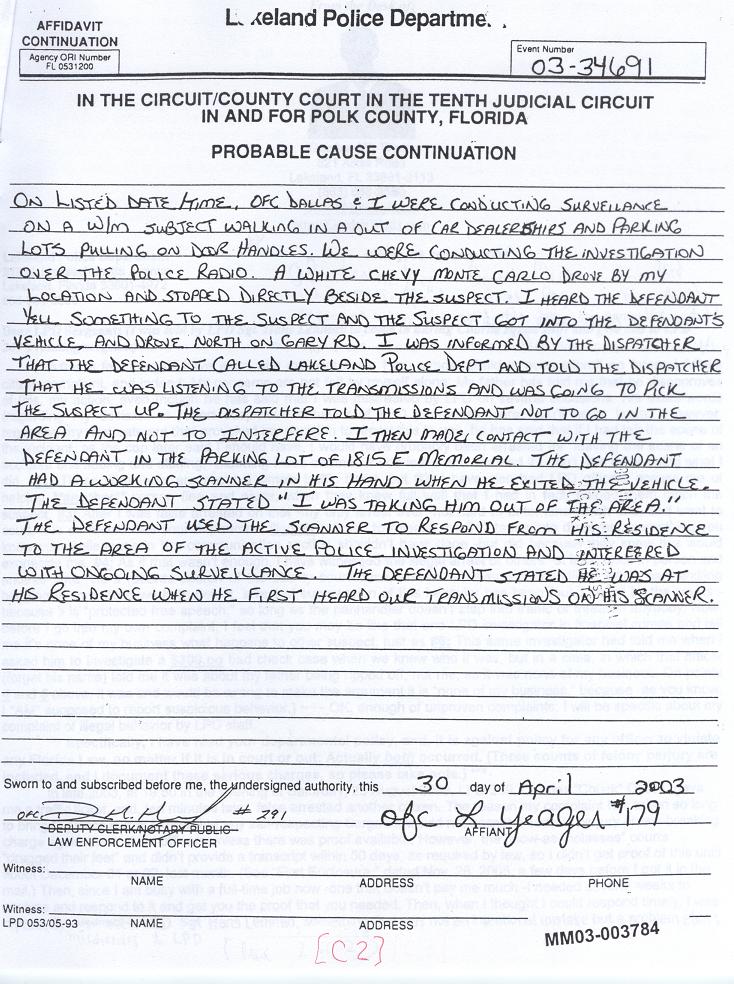 Lakeland Police Departme
AFFIDAVIT
CONTINUATION
Agency ORI Number
FL 0531200
Event Number
03-34691
IN THE CIRCUIT/COUNTY COURT IN THE TENTH JUDICIAL CIRCUIT
IN AND FOR POLK COUNTY, FLORIDA
PROBABLE CAUSE CONTINUATION
ON LISTED DATE/TIME, OFC DALLAS & I WERE CONDUCTING SURVEILLANCE
ON A W/M SUBJECT WALKING IN A OUT OF CAR DEALERSHIPS AND PARKING
LOTS PULLING ON DOOR HANDLES. WE WERE CONDUCTING THE INVESTIGATION
OVER THE POLICE RADIO. A WHITE CHEVY MONTE CARLO DROVE BY MY
LOCATION AND STOPPED DIRECTLY BESIDE THE SUSPECT. I HEARD THE DEFENDANT
YELL SOMETHING TO THE SUSPECT AND THE SUSPECT GOT INTO THE DEFENDANT'S
VEHICLE, AND DROVE NORTH ON GARY RD. I WAS INFORMED BY THE DISPATCHER
THAT THE DEFENDANT CALLED LAKELAND POLICE DEPT AND TOLD THE DISPATCHER
THAT HE WAS LISTENING TO THE TRANSMISSIONS AND WAS GOING TO PICK
THE SUSPECT UP. THE DISPATCHER TOLD THE DEFENDANT NOT TO GO IN THE
AREA AND NOT TO INTERFERE. I THEN MADE CONTACT WITH THE
DEFENDANT IN THE PARKING LOT OF 1815 E MEMORIAL. THE DEFENDANT
HAD A WORKING SCANNER IN HIS HAND WHEN HE EXITED THE VEHICLE.
THE DEFENDANT STATED "I WAS TAKING HIM OUT OF THE AREA."
THE DEFENDANT USED THE SCANNER TO RESPOND FROM HIS RESIDENCE
TO THE AREA OF THE ACTIVE POLICE INVESTIGATION AND INTERFERED
WITH ONGOING SURVEILLANCE. THE DEFENDANT STATED HE WAS AT
HIS RESIDENCE WHEN HE FIRST HEARD OUR TRANSMISSIONS ON HIS SCANNER.
Sworn to and subscribed before me, the undersigned authority, this 30 day of April 2003
OFC. # 291
Ofc L Yeager #179
DEPUTY CLERK/NOTARY PUBLIC
AFFIANT
LAW ENFORCEMENT OFFICER
Witness:
NAME ADDRESS PHONE
Witness:
LPD 053/05-93 NAME ADDRESS
MM03-003784
[C-2]